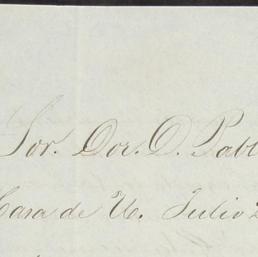 Sor. Dor. D. Pabl
Casa de U. Julio 2